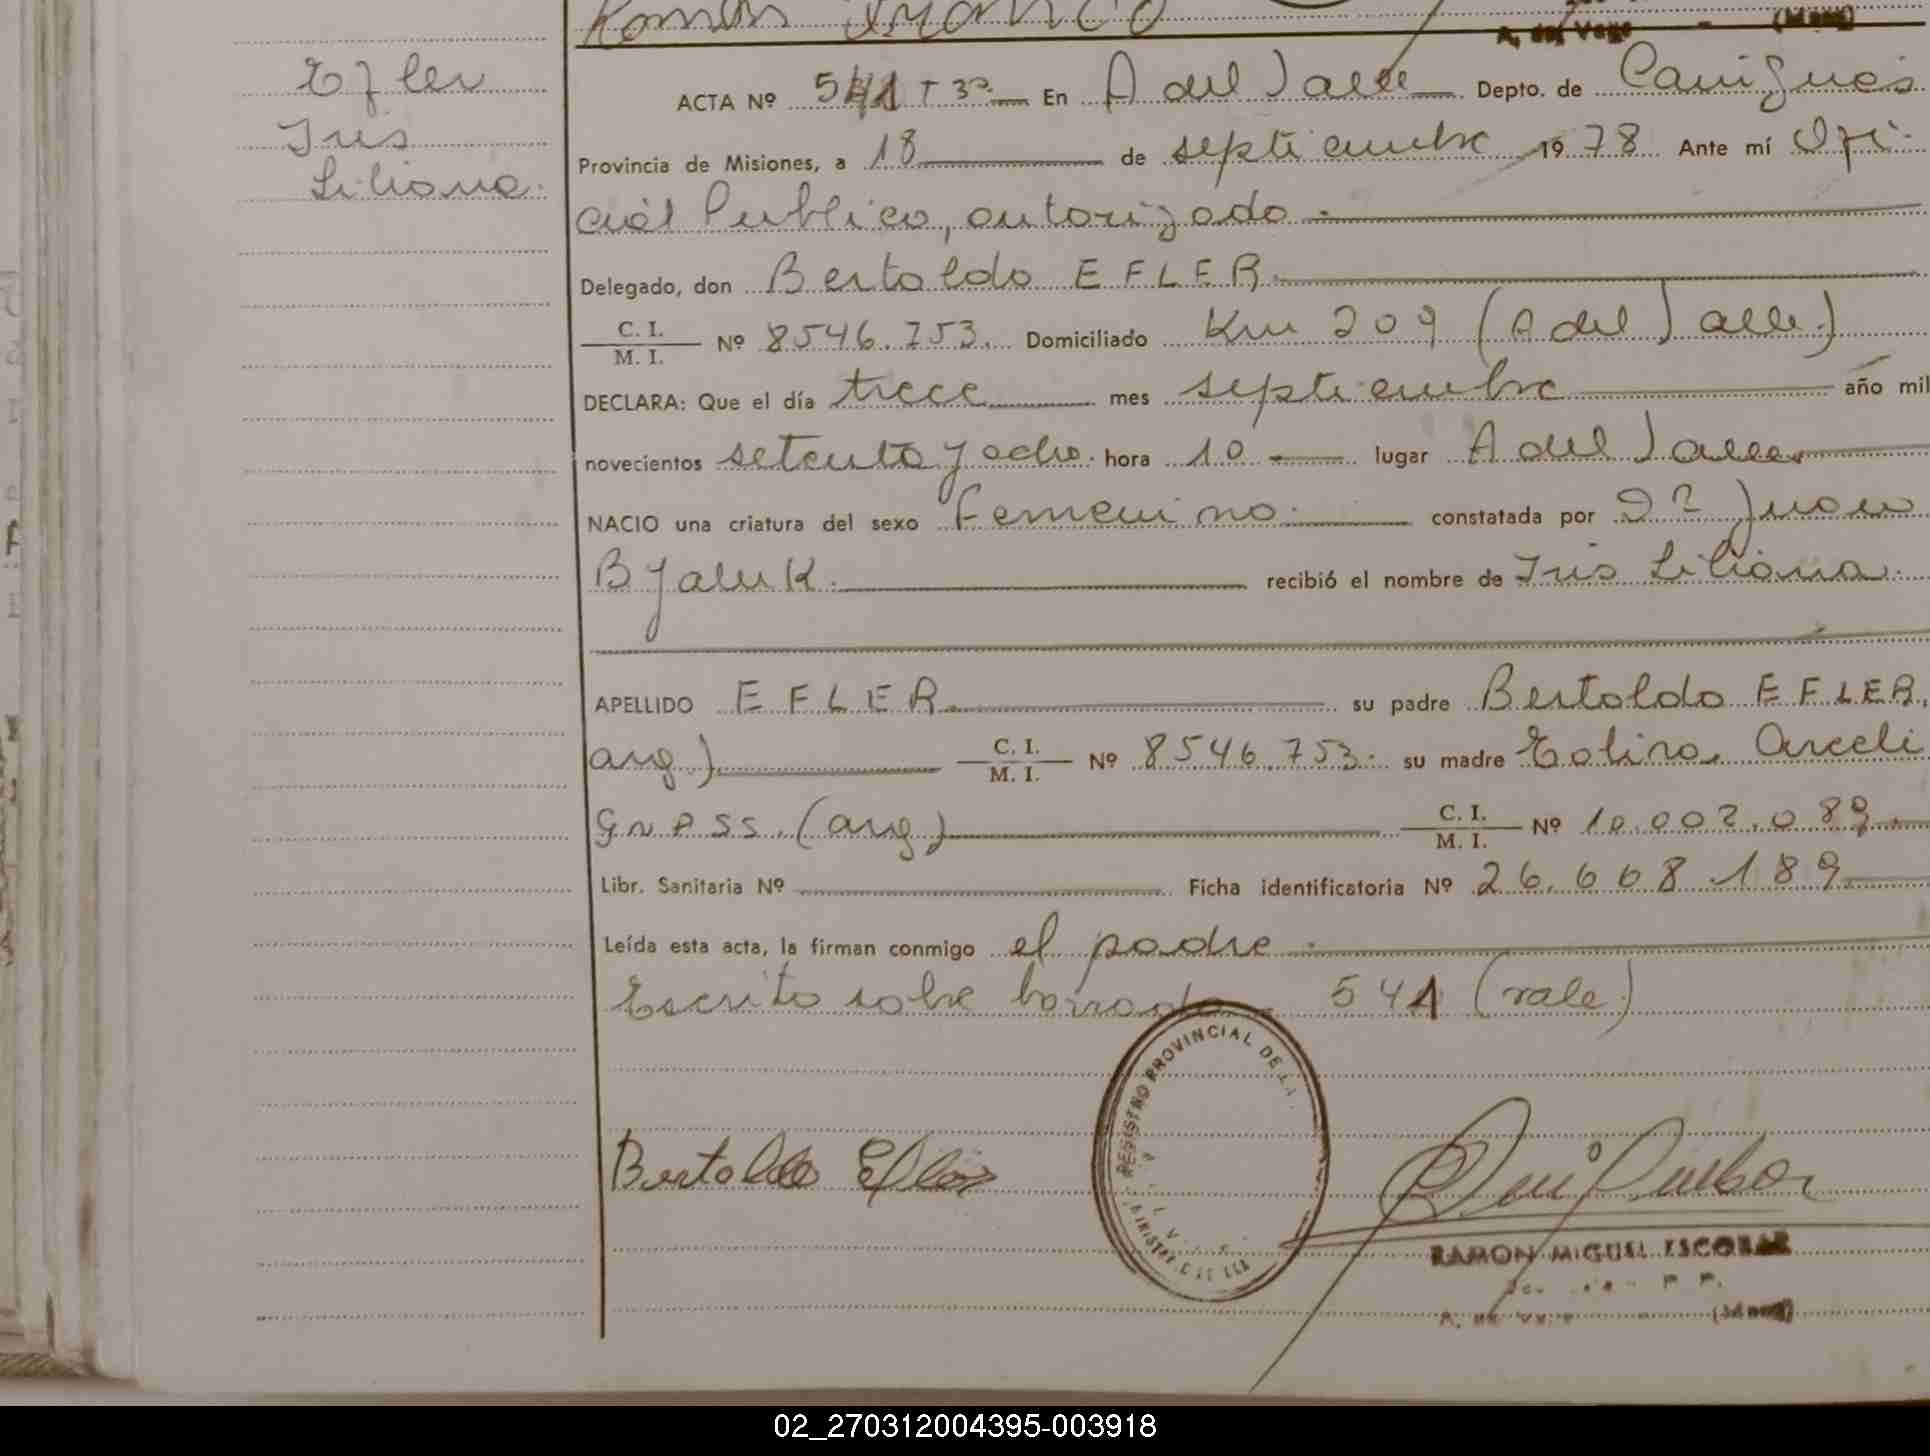 Ramón Franco
A. del Valle - (Mnes)
Efler
Iris
Liliana.
ACTA Nº 541 Tº 3º En A del Valle Depto. de Cainguás
Provincia de Misiones, a 18 de septiembre 1978 Ante mí Ofi-
cial Público, autorizado.
Delegado, don Bertoldo EFLER.
C. I.
M. I. Nº 8546.753. Domiciliado Km 209 (A del Valle.)
DECLARA: Que el día trece mes septiembre año mil
novecientos setenta y ocho. hora 10 lugar A del Valle
NACIO una criatura del sexo femenino. constatada por Dr Juan
Byaluk. recibió el nombre de Iris Liliana.
APELLIDO EFLER. su padre Bertoldo EFLER,
arg.) C. I.
M. I. Nº 8546.753. su madre Arceli
(arg) C. I.
M. I. Nº 10.002.089.
Libr. Sanitaria Nº Ficha identificatoria Nº 26.668.189
Leída esta acta, la firman conmigo el padre.
Escrito sobre borrado 541 (vale)
REGISTRO PROVINCIAL DE LA
Bertoldo Efler
RAMON MIGUEL ESCOBAR
(Mnes)
02_270312004395-003918